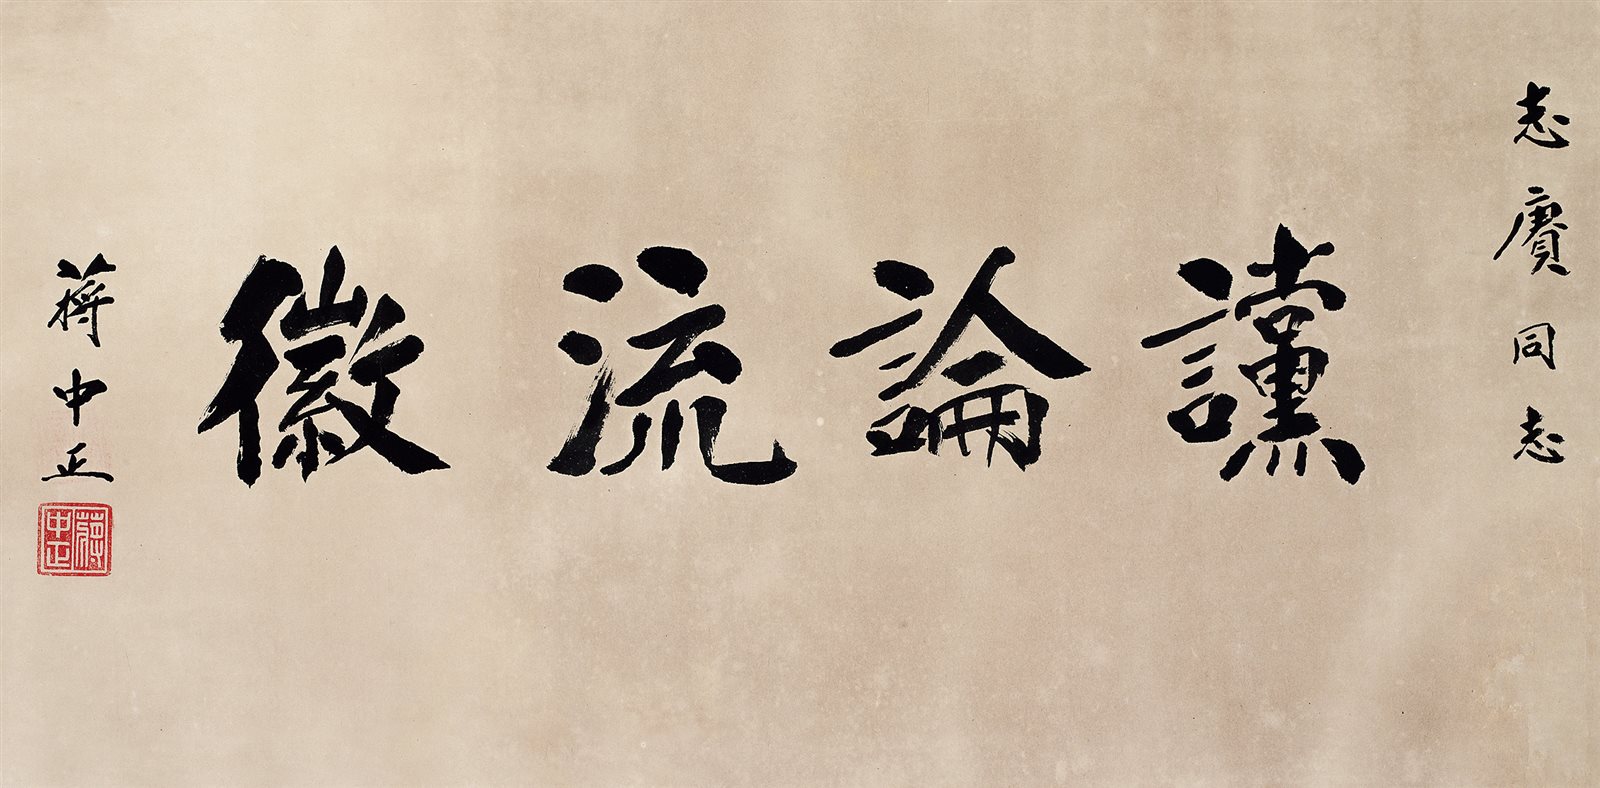 志賡同志
讜論流徽
蔣中正
蔣中正